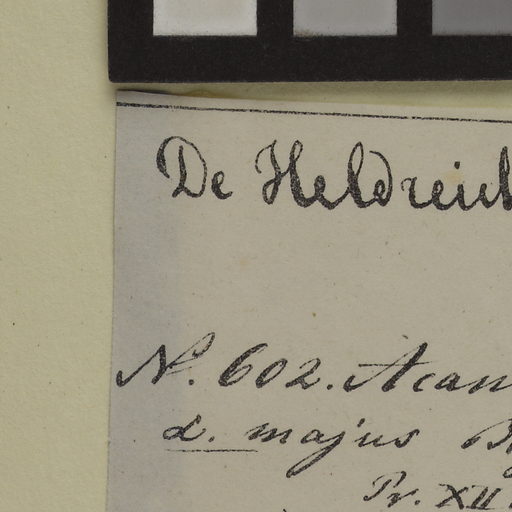 De Heldreich
N. 602. Acan
α. majus
Pr. XII